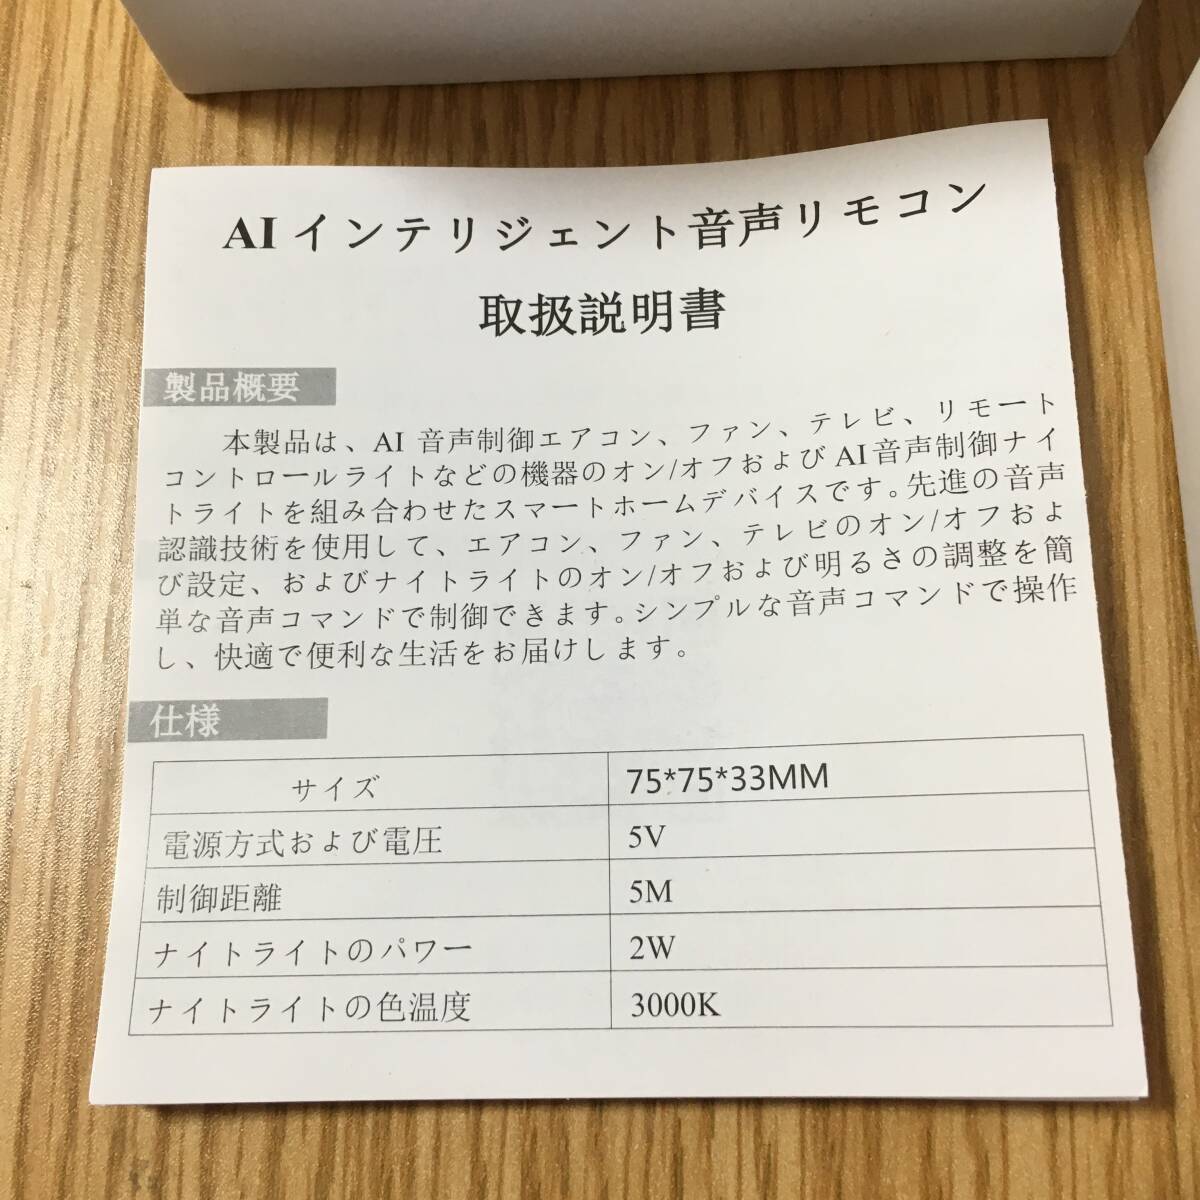 AI インテリジェント音声リモコン
取扱説明書
製品概要
本製品は、AI 音声制御エアコン、ファン、テレビ、リモート
コントロールライトなどの機器のオン/オフおよび AI 音声制御ナイ
トライトを組み合わせたスマートホームデバイスです。先進の音声
認識技術を使用して、エアコン、ファン、テレビのオン/オフおよ
び設定、およびナイトライトのオン/オフおよび明るさの調整を簡
単な音声コマンドで制御できます。シンプルな音声コマンドで操作
し、快適で便利な生活をお届けします。
仕様
サイズ 75*75*33MM
電源方式および電圧 5V
制御距離 5M
ナイトライトのパワー 2W
ナイトライトの色温度 3000K